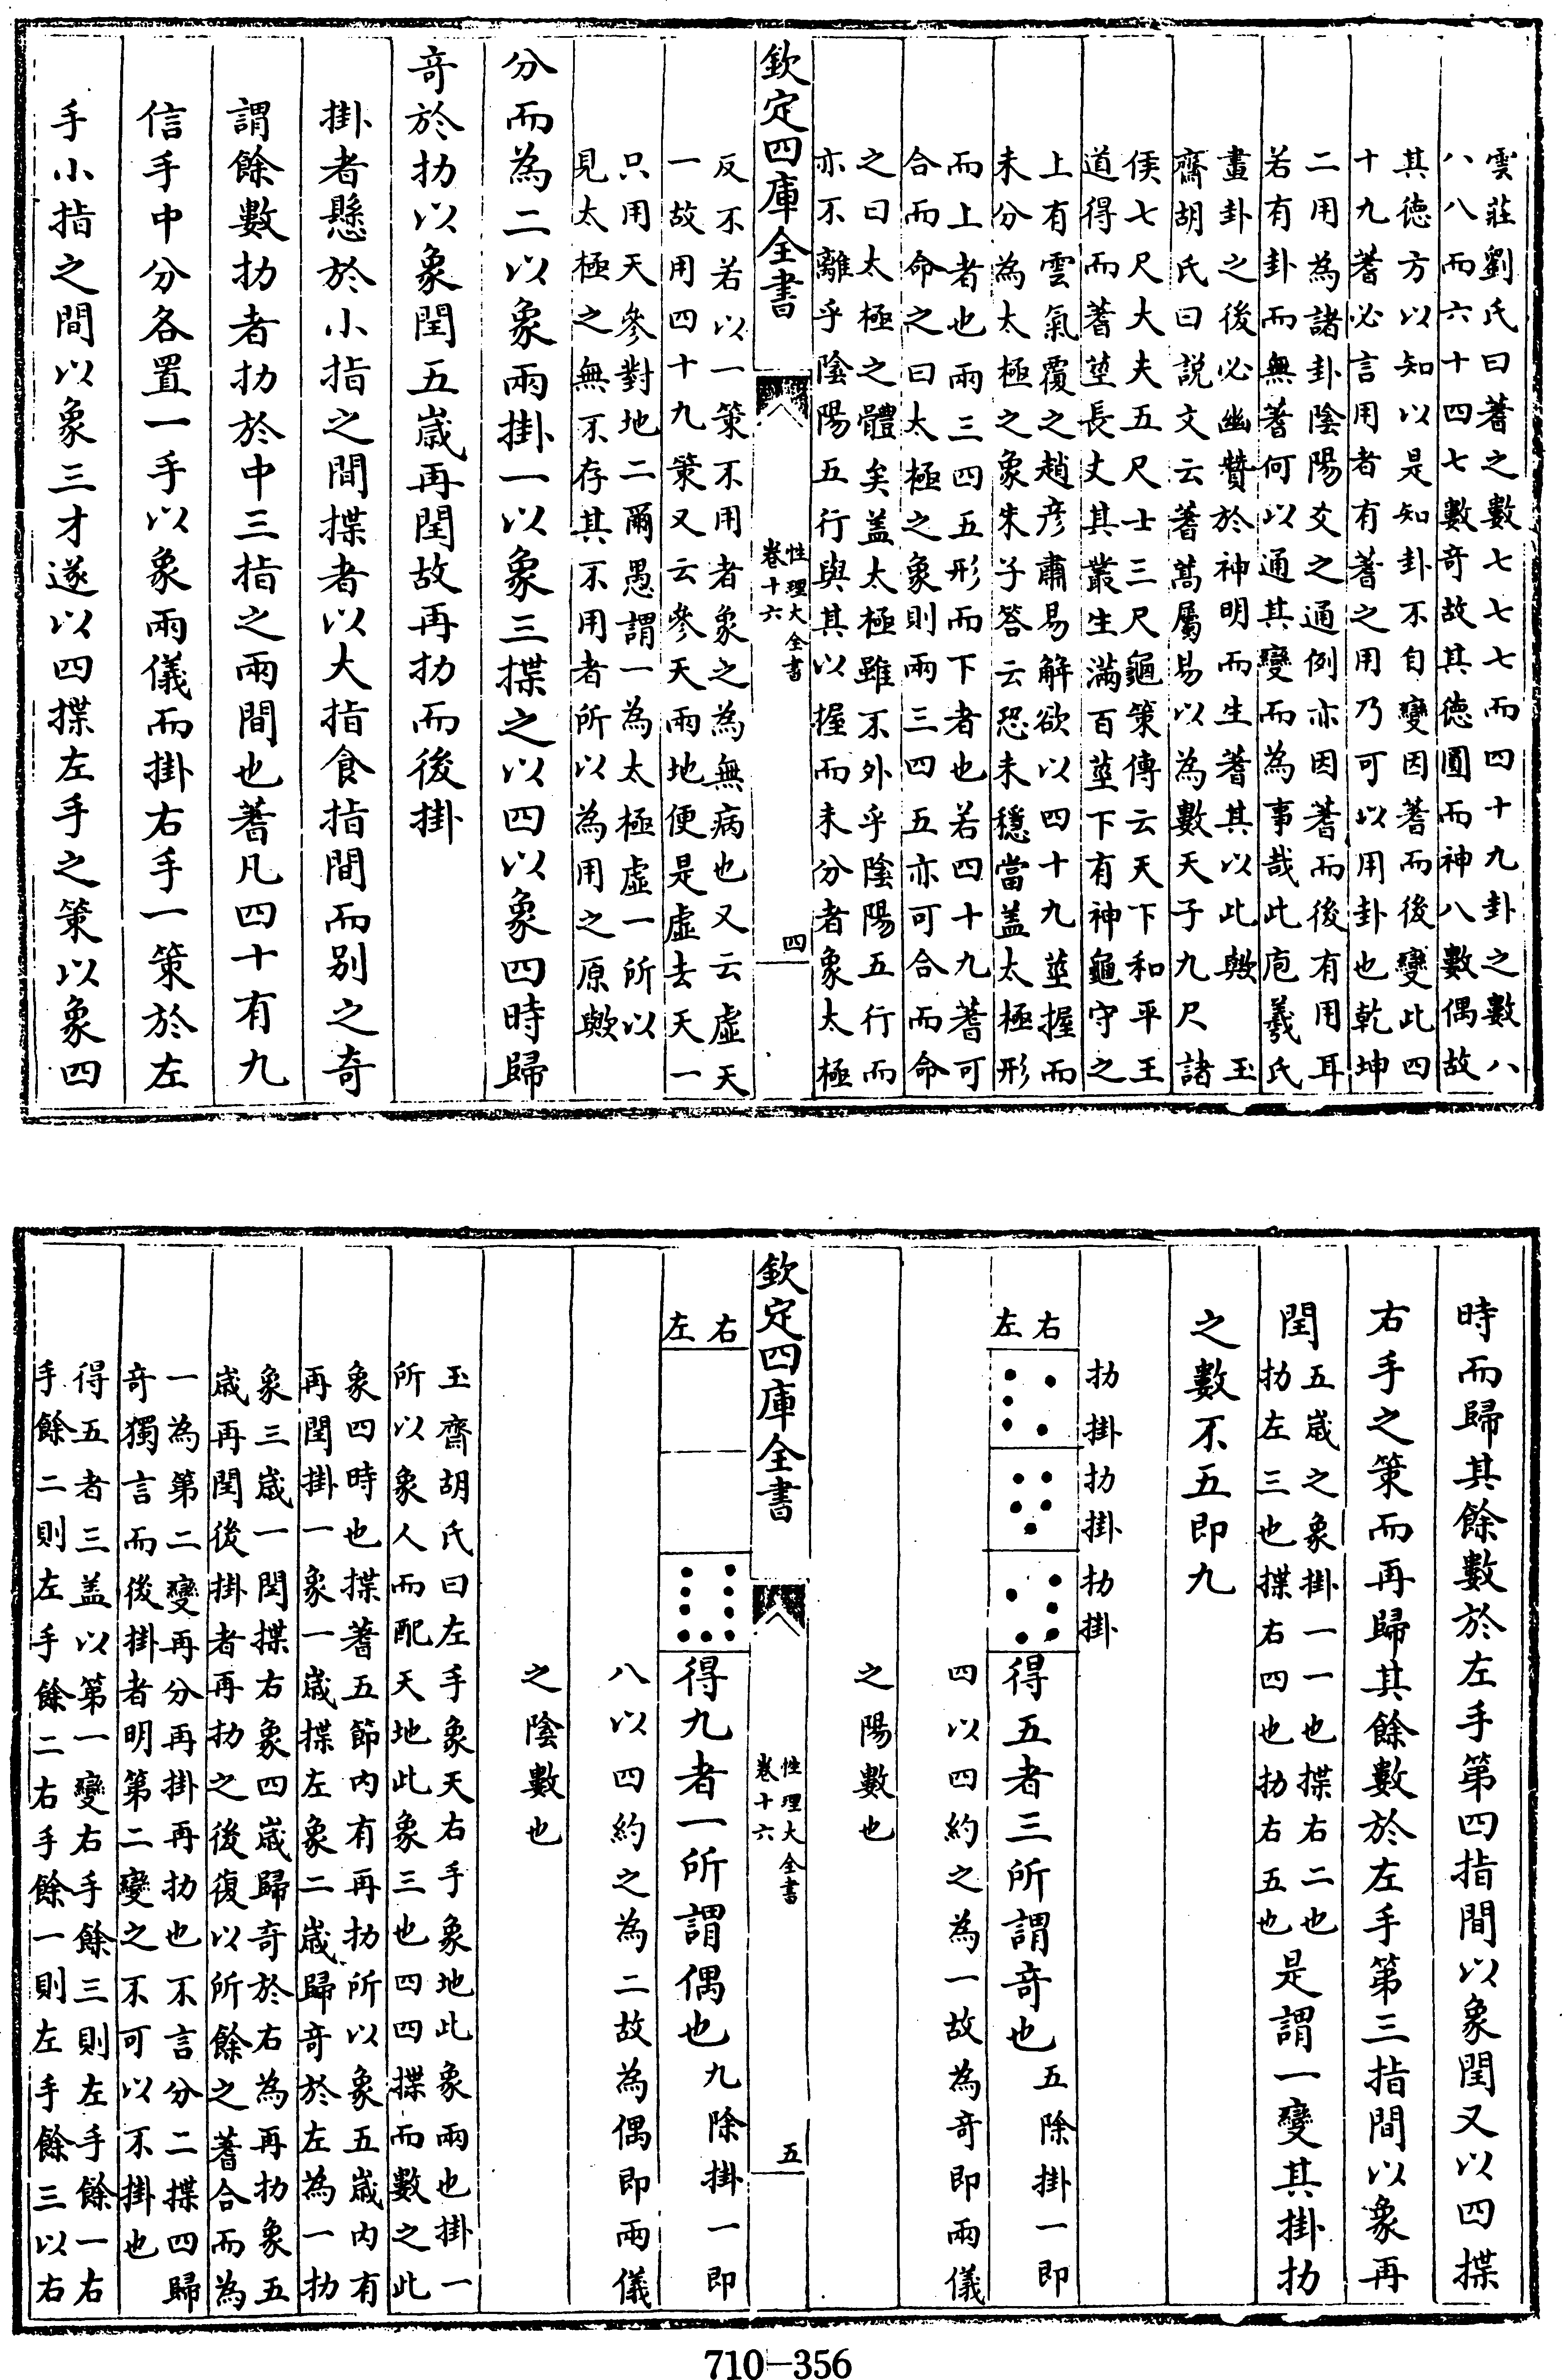 雲莊劉氏曰蓍之數七七七而四十九卦之數八
八八而六十四七數奇故其徳圓而神八數偶故
其徳方以知以是知卦不自變因蓍而後變此四
十九蓍必言用者有蓍之用乃可以用卦也乾坤
二用為諸卦陰陽爻之通例亦因蓍而後有用耳
若有卦而無蓍何以通其變而為事哉此庖羲氏
畫卦之後必幽贊於神明而生蓍其以此歟 玉
齋胡氏曰說文云蓍蒿屬易以為數天子九尺諸
侯七尺大夫五尺士三尺龜策傳云天下和平王
道得而蓍莖長丈其叢生滿百莖下有神龜守之
上有雲氣覆之趙彦肅易解欲以四十九莖握而
未分為太極之象朱子答云恐未穩當盖太極形
而上者也兩三四五形而下者也若四十九蓍可
合而命之曰太極之象則兩三四五亦可合而命
之曰太極之體矣盖太極雖不外乎陰陽五行而
亦不離乎陰陽五行與其以握而未分者象太極
欽定四庫全書
性理大全書
卷十六
四
反不若以一策不用者象之為無病也又云虛天
一故用四十九策又云參天兩地便是虛去天一
只用天參對地二爾愚謂一為太極虛一所以
見太極之無不存其不用者所以為用之原歟
分而為二以象兩掛一以象三揲之以四以象四時歸
奇於扐以象閏五歲再閏故再扐而後掛
掛者懸於小指之間揲者以大指食指間而别之奇
謂餘數扐者扐於中三指之兩間也蓍凡四十有九
信手中分各置一手以象兩儀而掛右手一策於左
手小指之間以象三才遂以四揲左手之策以象四
時而歸其餘數於左手第四指間以象閏又以四揲
右手之策而再歸其餘數於左手第三指間以象再
閏
五歲之象掛一一也揲右二也
扐左三也揲右四也扐右五也
是謂一變其掛扐
之數不五即九
扐掛扐掛扐掛
右
左
得五者三所謂奇也
五除掛一即
四以四約之為一故為奇即兩儀
之陽數也
欽定四庫全書
性理大全書
卷十六
五
右
左
得九者一所謂偶也
九除掛一即
八以四約之為二故為偶即兩儀
之陰數也
玉齋胡氏曰左手象天右手象地此象兩也掛一
所以象人而配天地此象三也四四揲而數之此
象四時也揲蓍五節内有再扐所以象五歲内有
再閏掛一象一歲揲左象二歲歸奇於左為一扐
象三歲一閏揲右象四歲歸奇於右為再扐象五
歲再閏後掛者再扐之後復以所餘之蓍合而為
一為第二變再分再掛再扐也不言分二揲四歸
奇獨言而後掛者明第二變之不可以不掛也
得五者三盖以第一變右手餘三則左手餘一右
手餘二則左手餘二右手餘一則左手餘三以右
710-356